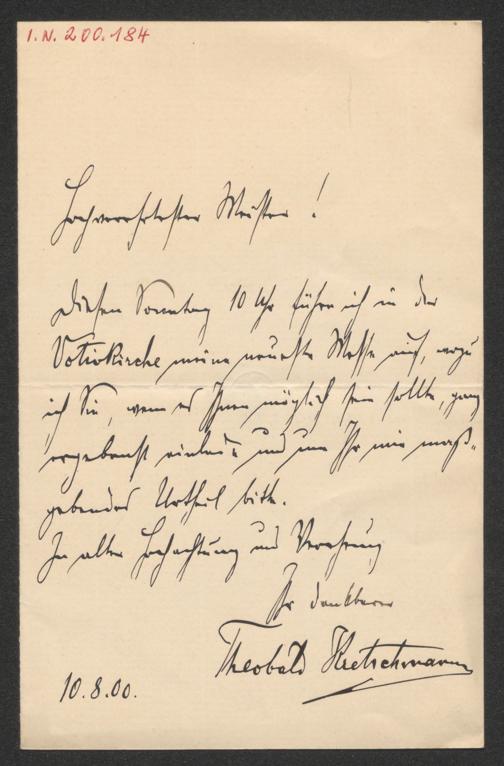 I. N. 200.184
Hochverehrtester Meister!
Diesen Sonntag 10 Uhr führe ich in der
Votivkirche meine neueste Messe auf, wozu
ich Sie, wenn es Ihnen möglich sein sollte, ganz
ergebenst einlade und um Ihr mir maß-
gebendes Urtheil bitte.
In alter Hochachtung und Verehrung
Ihr dankbarer
Theobald Kretschmann
10.8.00.